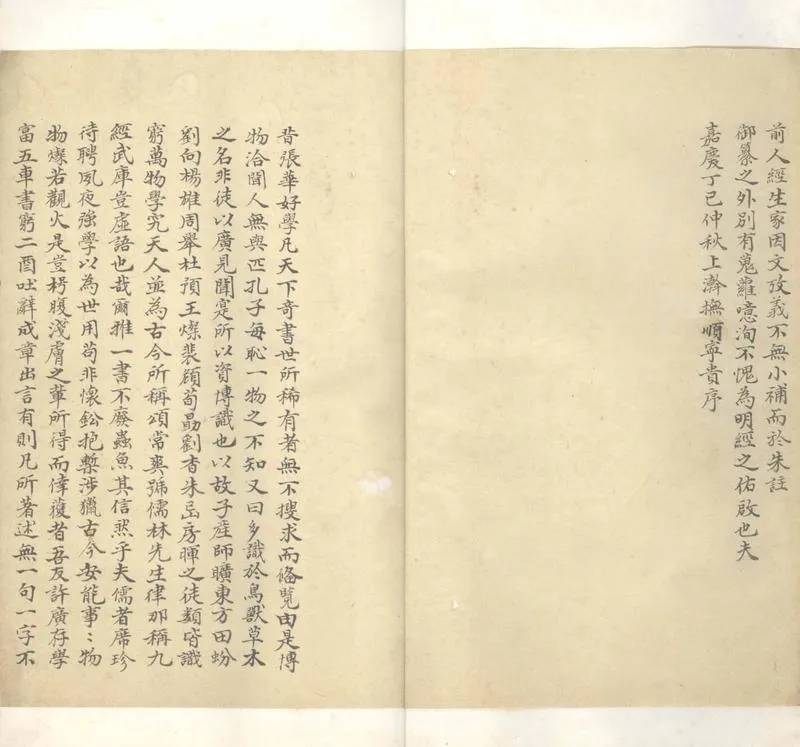 前人經生家因文攷義不無小補而於朱註
御纂之外別有蒐羅噫洵不愧為明經之佑啟也夫
嘉慶丁巳仲秋上澣撫順寗貴序
昔張華好學凡天下奇書世所稀有者無不搜求而俻覽由是博
物洽聞人無與匹孔子每恥一物之不知又曰多識於鳥獸草木
之名非徒以廣見聞寔所以資博識也以故子產師曠東方田蚡
劉向楊雄周舉杜預王燦裴頠荀勗劉杳朱昂房暉之徒類皆識
窮萬物學究天人並為古今所稱頌常爽號儒林先生律那稱九
經武庫豈虛語也哉爾雅一書不廢蟲魚其信然乎夫儒者席珍
待聘夙夜強學以為世用苟非懷鈆抱槧涉獵古今安能事〻物
物燦若觀火是豈枵腹淺膚之輩所得而倖獲者吾友許廣存學
富五車書窮二酉吐辭成章出言有則凡所著述無一句一字不